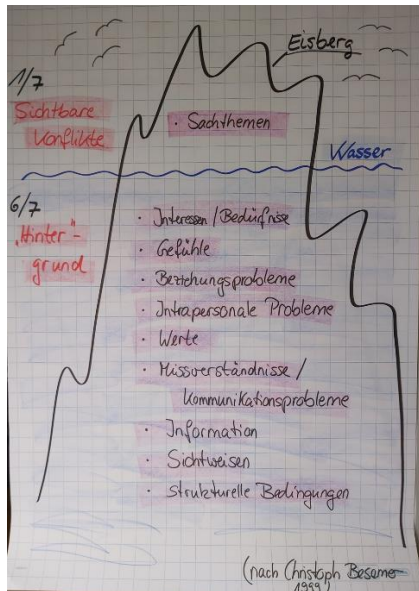 Eisberg
1/7
Sichtbare
Konflikte
· Sachthemen
Wasser
6/7
"Hinter"-
grund
· Interessen/Bedürfnisse
· Gefühle
· Beziehungsprobleme
· Intrapersonale Probleme
· Werte
· Missverständnisse/
Kommunikationsprobleme
· Information
· Sichtweisen
· Strukturelle Bedingungen
(nach Christoph Besemer
1999)